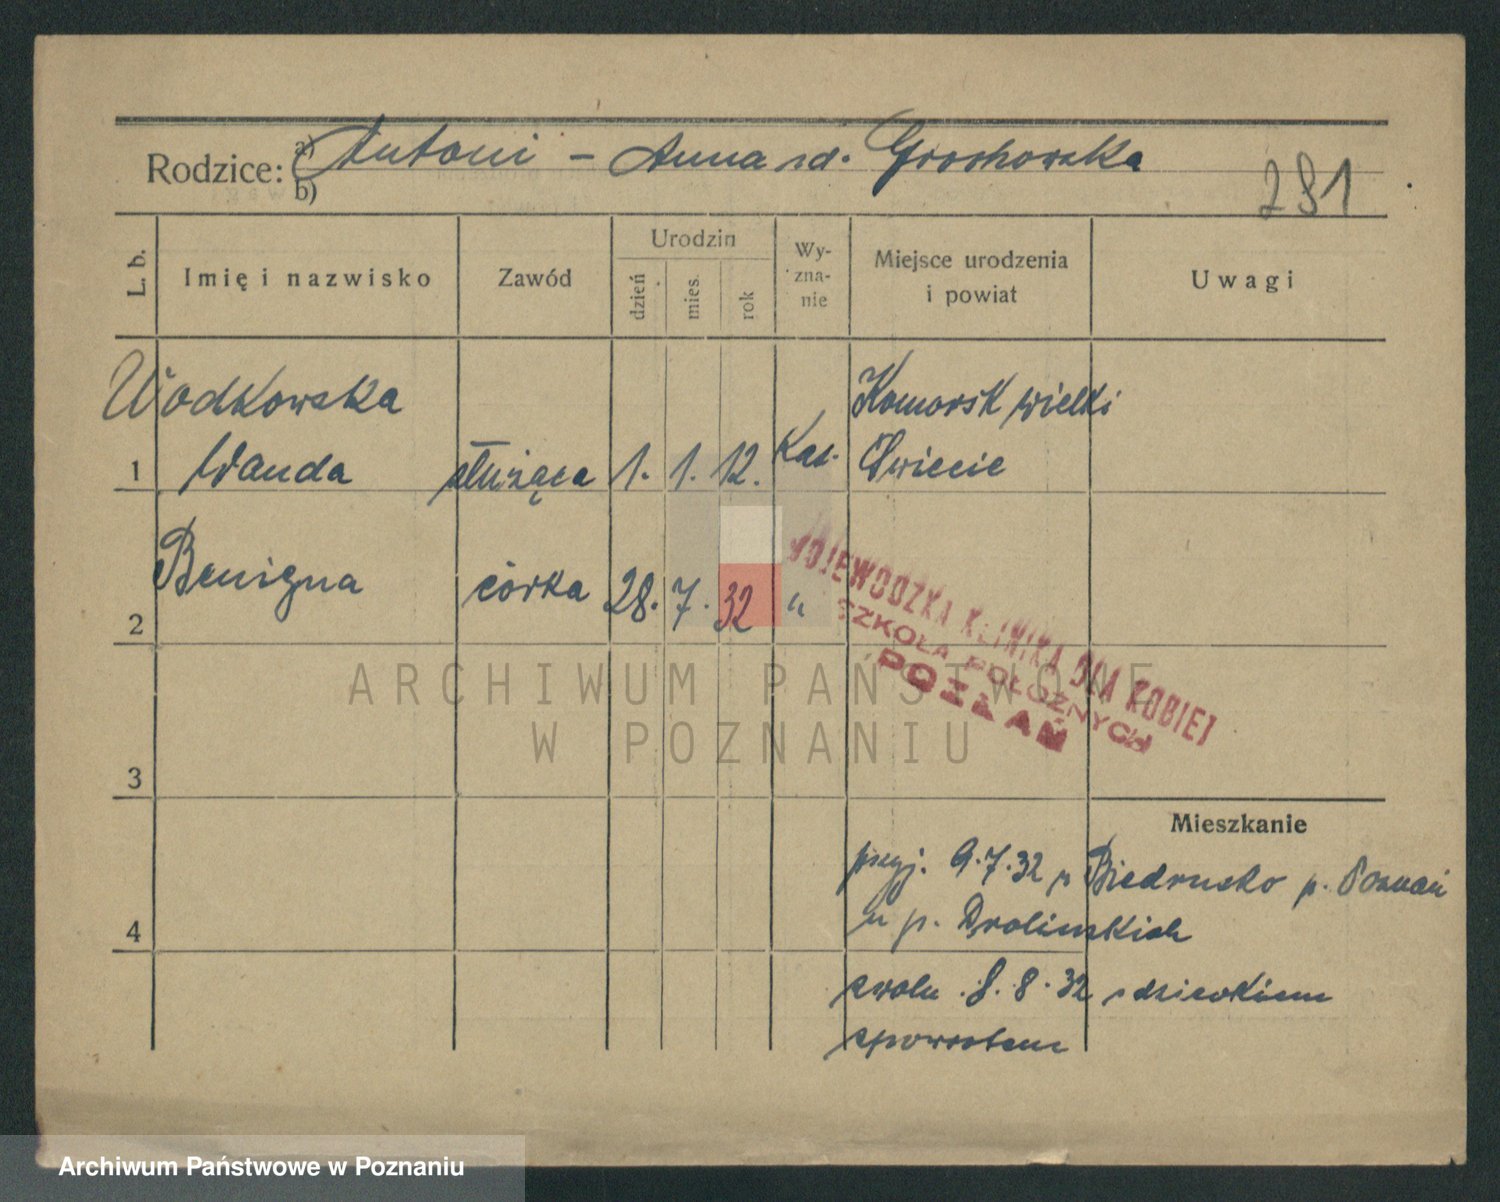 Rodzice: a) Antoni - Anna zd. Grochowska
b)
281
L. b.
Imię i nazwisko
Zawód
Urodzin
dzień
mies.
rok
Wy-
zna-
nie
Miejsce urodzenia
i powiat
Uwagi
Wodkowska
Komorsk wielki
1 Wanda służąca 1. 1. 12. Kat. Świecie
2 Benigna córka 28. 7. 32 "
WOJEWÓDZKA KLINIKA DLA KOBIET
SZKOŁA POŁOŻNYCH
POZNAŃ
ARCHIWUM PAŃSTWOWE
W POZNANIU
3
Mieszkanie
przyj. 9.7.32 z Biedrusko p. Poznań
4
u p. Drolinskich
zwoln. 8.8.32 z dzieckiem
zpowrotem
Archiwum Państwowe w Poznaniu